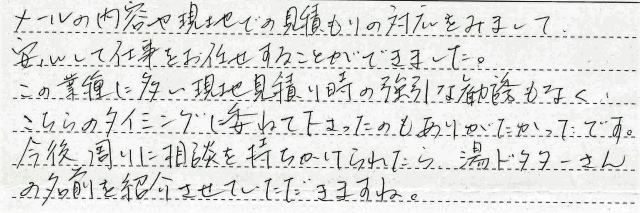 メールの内容や現地での見積もりの対応をみまして、
安心して仕事をお任せすることができました。
この業種に多い現地見積り時の強引な勧誘もなく、
こちらのタイミングに委ねて下さったのもありがたかったです。
今後周りに相談を持ちかけられたら、湯ドクターさん
の名前を紹介させていただきますね。